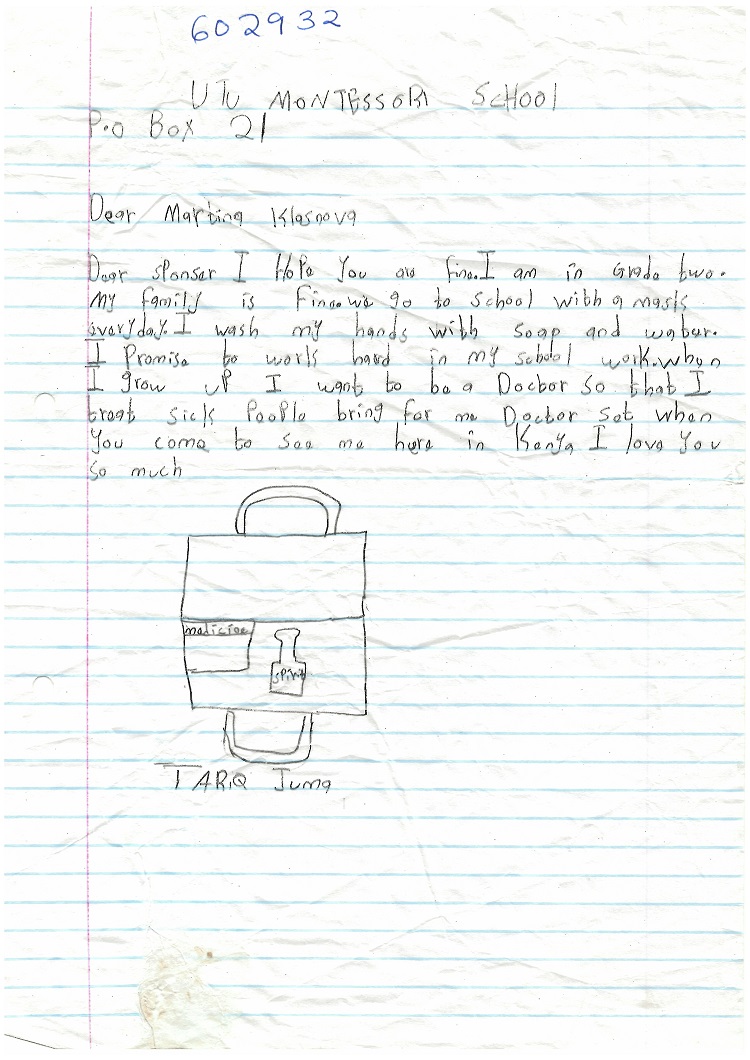 602932
UTU MONTESSORI SCHOOL
P.o Box 21
Dear Martina Klasnova
Dear sponser I Hope You are fine.I am in Grade two.
My family is fine.we go to School with a mask
everyday.I wash my hands with soap and water.
I Promise to work hard in my school work.when
I grow uP I want to be a Doctor so that I
treat sick PeoPle bring for me Doctor Set when
You come to see me here in Kenya I love You
so much
medicine
spirit
TARiQ Juma